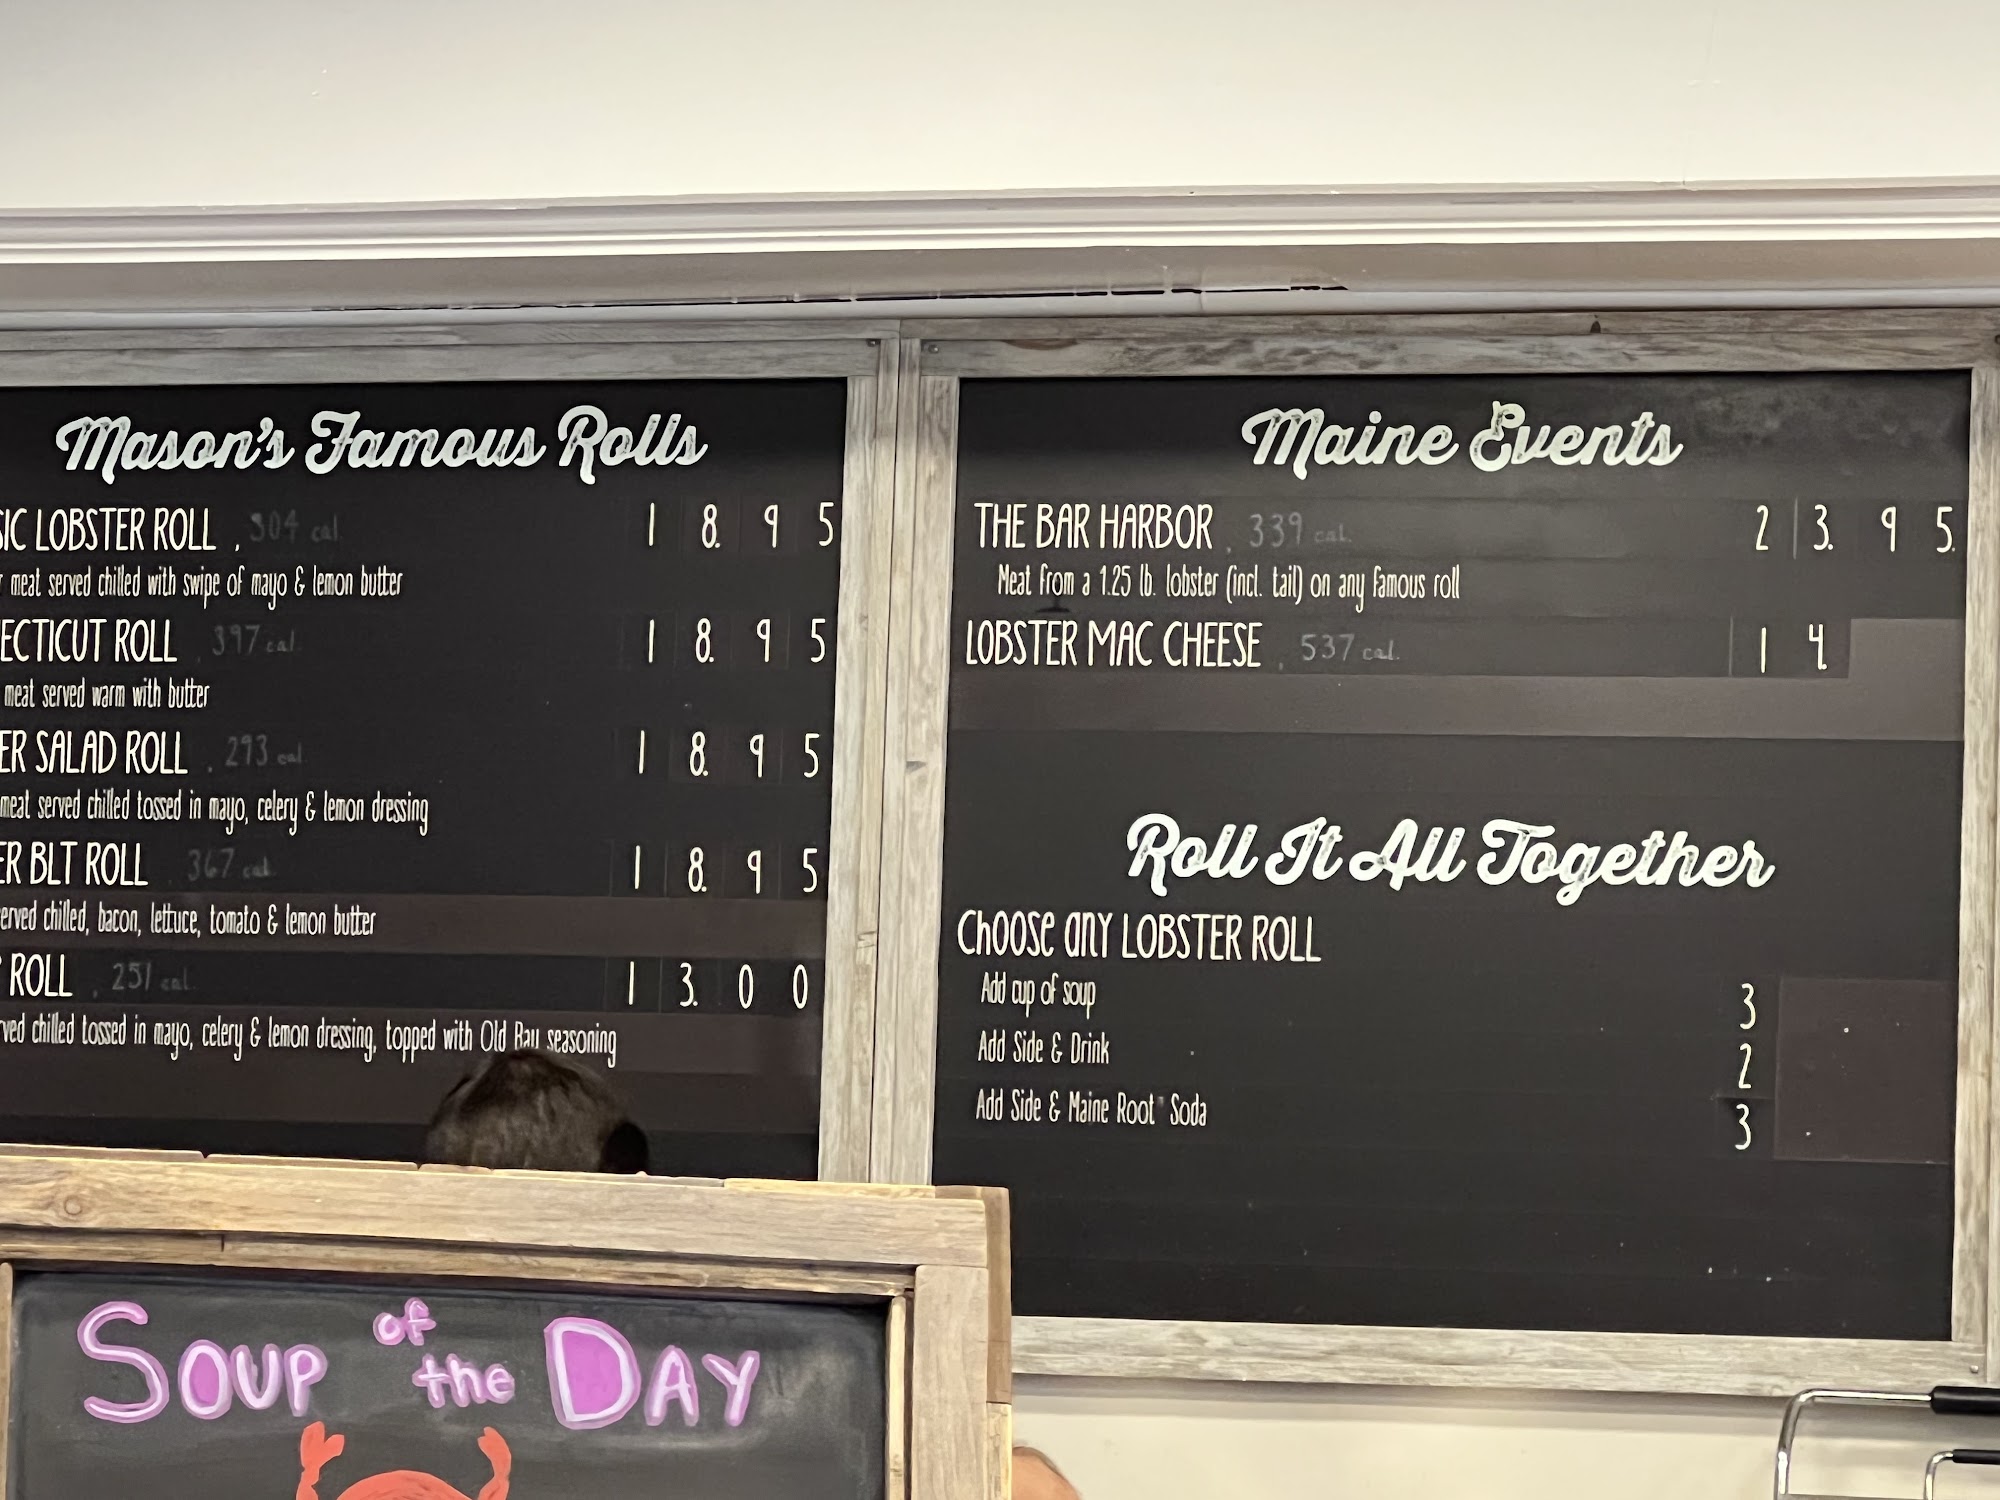 Mason's Famous Rolls
SIC LOBSTER ROLL . 304 cal. 18.95
meat served chilled with swipe of mayo & lemon butter
ECTICUT ROLL . 397 cal. 18.95
meat served warm with butter
ER SALAD ROLL . 293 cal. 18.95
meat served chilled tossed in mayo, celery & lemon dressing
ER BLT ROLL . 367 cal. 18.95
erved chilled, bacon, lettuce, tomato & lemon butter
ROLL . 251 cal. 13.00
ved chilled tossed in mayo, celery & lemon dressing, topped with Old Bay seasoning
Maine Events
THE BAR HARBOR . 339 cal. 23.95
Meat from a 1.25 lb. lobster (incl. tail) on any famous roll
LOBSTER MAC CHEESE . 537 cal. 14.
Roll It All Together
Choose any LOBSTER ROLL
Add cup of soup 3
Add Side & Drink 2
Add Side & Maine Root Soda 3
SOUP of the DAY